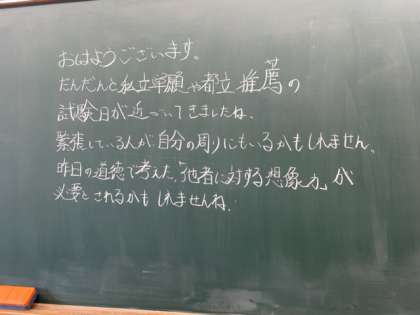 おはようございます。
だんだんと私立単願や都立推薦の
試験日が近づいてきましたね。
緊張している人が自分の周りにもいるかもしれません。
昨日の道徳で考えた「他者に対する想像力」が
必要とされるかもしれませんね。